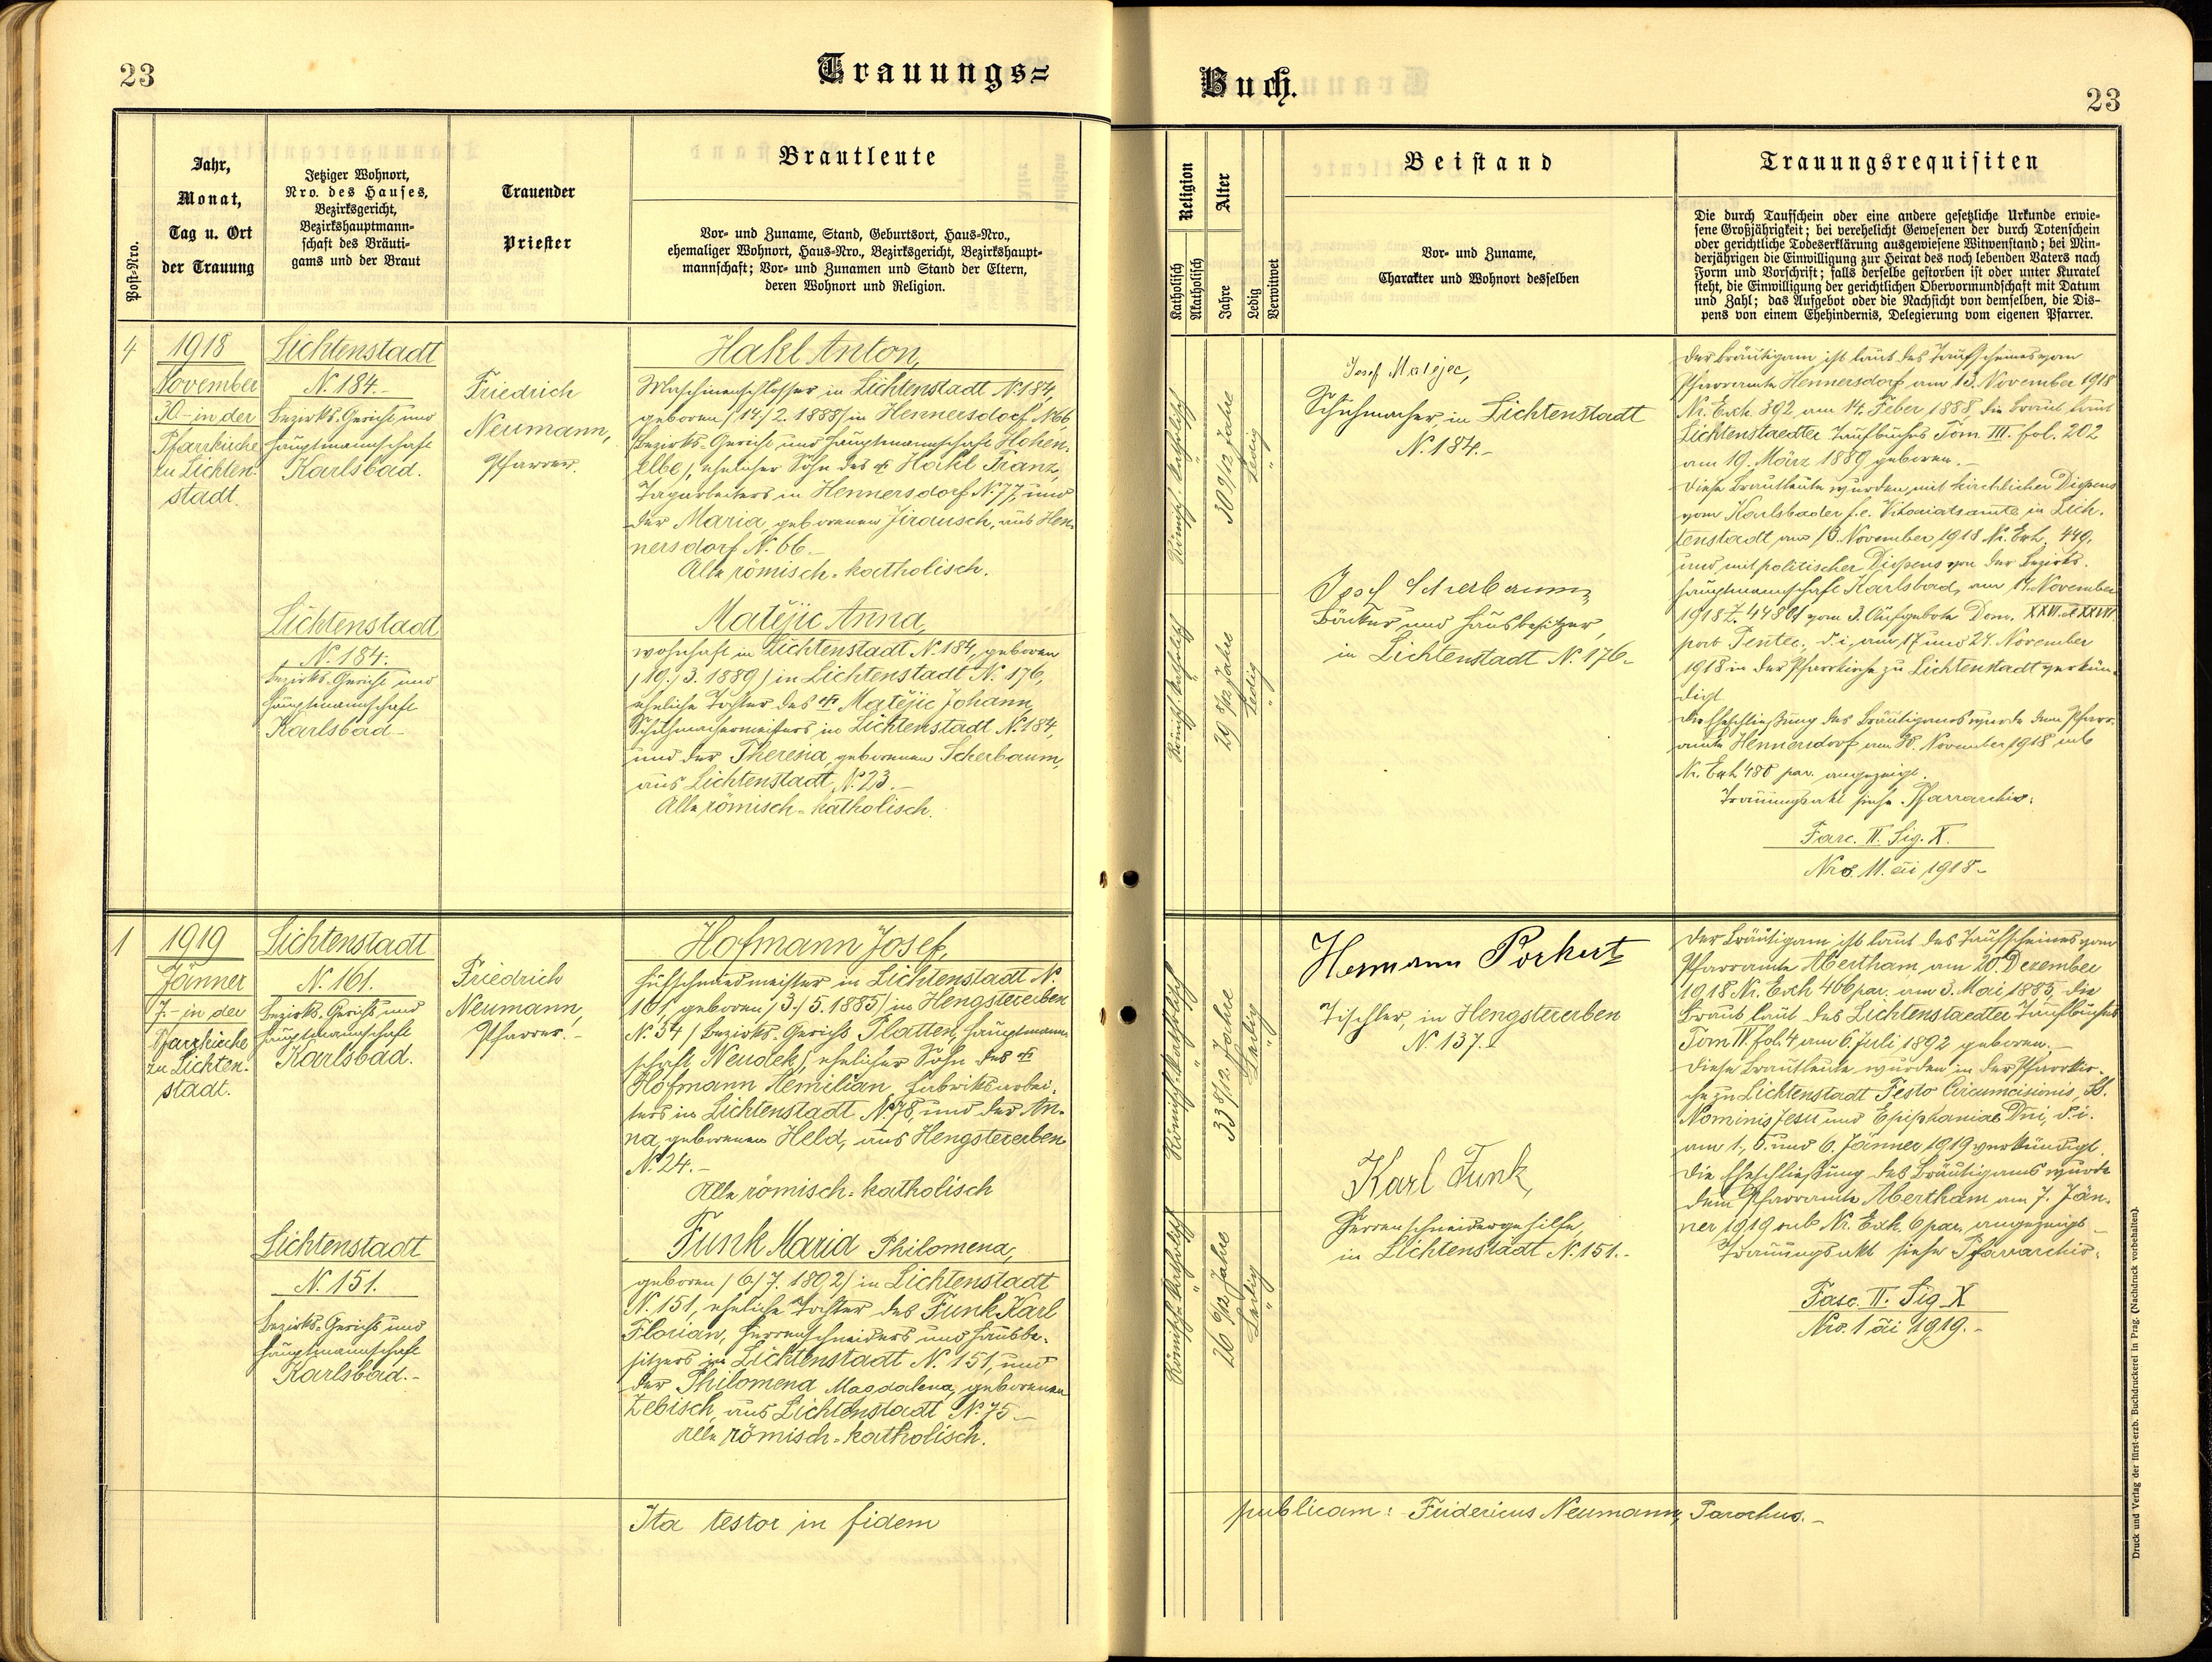 23
Trauungs=
Jahr,
Monat,
Tag u. Ort
der Trauung
Post-Nro.
Jetziger Wohnort,
Nro. des Hauses,
Bezirksgericht,
Bezirkshauptmann-
schaft des Bräuti-
gams und der Braut
Trauender
Priester
Brautleute
Vor- und Zuname, Stand, Geburtsort, Haus-Nro.,
ehemaliger Wohnort, Haus-Nro., Bezirksgericht, Bezirkshaupt-
mannschaft; Vor- und Zunamen und Stand der Eltern,
deren Wohnort und Religion.
4
1918
November
30.- in der
Pfarrkirche
zu Lichten-
stadt.
Lichtenstadt
N. 184.-
Bezirks-Gericht und
Hauptmannschaft
Karlsbad.
Friedrich
Neumann,
Pfarrer.
Hakl Anton,
Maschinenschlosser in Lichtenstadt N. 184,
geboren /14./2. 1888/ in Hennersdorf N. 66,
/Bezirks-Gericht und Hauptmannschaft Hohen-
elbe/, ehelicher Sohn des Hakl Franz,
Tagarbeiters in Hennersdorf N. 77, und
der Maria, geborenen Jirausch, aus Hen-
nersdorf N. 66.-
Alle römisch-katholisch.
Lichtenstadt
N. 184.
Bezirks-Gericht und
Hauptmannschaft
Karlsbad.-
Matějic Anna,
wohnhaft in Lichtenstadt N. 184, geboren
/19./3. 1889/ in Lichtenstadt N. 176,
eheliche Tochter des Matějic Johann,
Schuhmachermeisters in Lichtenstadt N. 184,
und der Theresia, geborenen Scherbaum,
aus Lichtenstadt N. 23.-
Alle römisch-katholisch.
1
1919
Jänner
7.- in der
Pfarrkirche
zu Lichten-
stadt.
Lichtenstadt
N. 161.
Bezirks-Gericht und
Hauptmannschaft
Karlsbad.
Friedrich
Neumann,
Pfarrer.-
Hofmann Josef,
Hufschmiedmeister in Lichtenstadt N.
161, geboren /3./5. 1885/ in Hengstererben
N. 54 / Bezirks-Gericht Platten, Hauptmann-
schaft Neudek/, ehelicher Sohn des
Hofmann Aemilian, Fabriksarbei-
ters in Lichtenstadt N. 78, und der An-
na, geborenen Held, aus Hengstererben
N. 24.-
Alle römisch-katholisch
Lichtenstadt
N. 151.
Bezirks-Gericht und
Hauptmannschaft
Karlsbad.-
Funk Maria Philomena,
geboren /6./7. 1892/ in Lichtenstadt
N. 151, eheliche Tochter des Funk Karl
Florian, Herrenschneiders und Hausbe-
sitzers in Lichtenstadt N. 151, und
der Philomena Magdalena, geborenen
Zebisch, aus Lichtenstadt N. 75.-
Alle römisch-katholisch.
Ita testor in fidem
Buch.
23
Religion
Katholisch
Akatholisch
Alter
Jahre
Ledig
Verwitwet
Beistand
Vor- und Zuname,
Charakter und Wohnort desselben
Trauungsrequisiten
Die durch Taufschein oder eine andere gesetzliche Urkunde erwie-
sene Großjährigkeit; bei verehelicht Gewesenen der durch Totenschein
oder gerichtliche Todeserklärung ausgewiesene Witwenstand; bei Min-
derjährigen die Einwilligung zur Heirat des noch lebenden Vaters nach
Form und Vorschrift; falls derselbe gestorben ist oder unter Kuratel
steht, die Einwilligung der gerichtlichen Obervormundschaft mit Datum
und Zahl; das Aufgebot oder die Nachsicht von demselben, die Dis-
pens von einem Ehehindernis, Delegierung vom eigenen Pfarrer.
Römisch-katholisch
30 9/12 Jahre
Ledig
Josef Matejec,
Schuhmacher, in Lichtenstadt
N. 184.-
Römisch-katholisch
29 8/12 Jahre
Ledig
Josef Scherbaum,
Bäcker und Hausbesitzer,
in Lichtenstadt N. 176.-
Der Bräutigam ist laut des Taufscheines vom
Pfarramte Hennersdorf am 13. November 1918
Nr. Exh. 392 am 14. Feber 1888, die Braut laut
Lichtenstaedter Taufbuches Tom. III. fol. 202
am 19. März 1889 geboren.-
Diese Brautleute wurden mit kirchlicher Dispens
vom Karlsbader f. e. Vikariatsamte in Lich-
tenstadt am 13. November 1918 Nr. Exh. 449,
und mit politischer Dispens von der Bezirks-
hauptmannschaft Karlsbad, am 14. November
1918 Z. vom 3. Aufgebote Dom. XXVI. et XXVII.
post Pentec., d. i. am 17. und 24. November
1918 in der Pfarrkirche zu Lichtenstadt verkün-
digt.
Die Eheschließung des Bräutigams wurde dem Pfarr-
amte Hennersdorf am 30. November 1918 sub
Nr. Exh. 480 par. angezeigt.
Trauungsakt siehe Pfarrarchiv:
Fasc. II. Sig. X.
Nro. 11. ai 1918.-
Römisch-katholisch
33 8/12 Jahre
Ledig
Hermann Porkert
Tischler, in Hengstererben
N. 137.-
Römisch-katholisch
26 6/12 Jahre
Ledig
Karl Funk,
Herrenschneidergehilfe,
in Lichtenstadt N. 151.-
Der Bräutigam ist laut des Taufscheines vom
Pfarramte Abertham am 20. Dezember
1918 Nr. Exh 466 par. am 3. Mai 1885, die
Braut laut des Lichtenstaedter Taufbuches
Tom IV. fol. 4 am 6. Juli 1892 geboren.-
Diese Brautleute wurden in der Pfarrkir-
che zu Lichtenstadt Festo Circumcisionis, SS.
Nominis Jesu und Epiphaniae Dni, d. i.
am 1., 5. und 6. Jänner 1919 verkündigt.
Die Eheschließung des Bräutigams wurde
dem Pfarramte Abertham am 7. Jän-
ner 1919 sub Nr. Exh. 6 par. angezeigt.-
Trauungsakt siehe Pfarrarchiv:
Fasc. II. Sig. X
Nro. 1 ai 1919.-
publicam: Fridericus Neumann, Parochus.-
Druck und Verlag der fürst-erzb. Buchdruckerei in Prag. (Nachdruck vorbehalten).